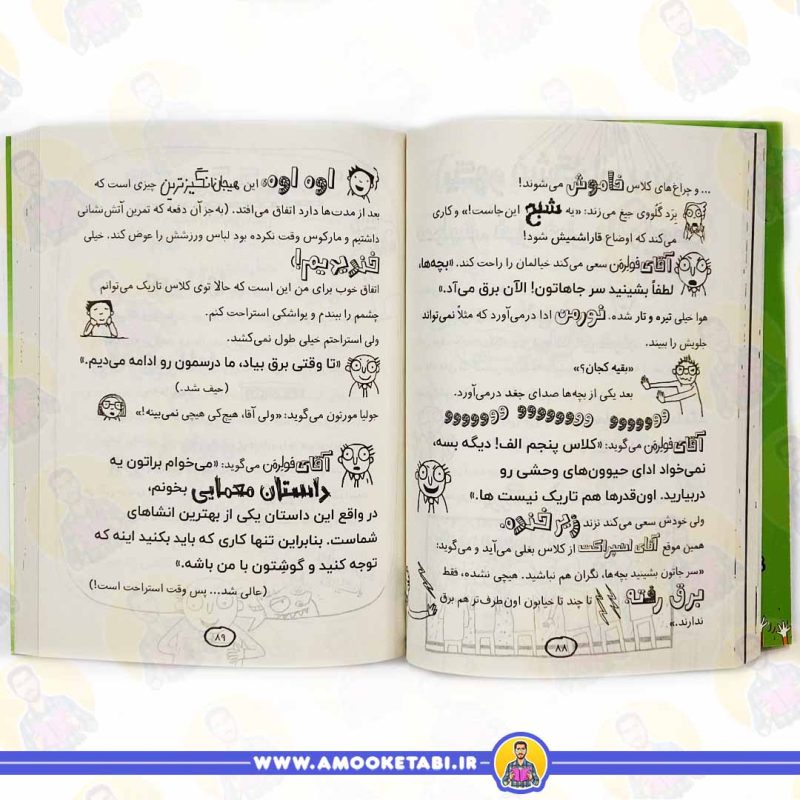 ... و چراغ‌های کلاس خاموش می‌شوند!
برد گَلووی جیغ می‌زند: «یه شبح این جاست!» و کاری
می‌کند که اوضاع قاراشمیش شود!
آقای فولرمَن سعی می‌کند خیالمان را راحت کند. «بچه‌ها،
لطفاً بشینید سر جاهاتون! الآن برق می‌آد.»
هوا خیلی تیره و تار شده. نورمن ادا درمی‌آورد که مثلاً نمی‌تواند
جلویش را ببیند.
«بقیه کجان؟»
بعد یکی از بچه‌ها صدای جغد درمی‌آورد.
آقای فولرمَن می‌گوید: «کلاس پنجم الف! دیگه بسه،
نمی‌خواد ادای حیوون‌های وحشی رو
دربیارید. اون‌قدرها هم تاریک نیست ها.»
ولی خودش سعی می‌کند نزند زیر خنده.
همین موقع آقای اسپراکت از کلاس بغلی می‌آید و می‌گوید:
«سر جاتون بشینید بچه‌ها، نگران هم نباشید. هیچی نشده، فقط
برق رفته. تا چند تا خیابون اون‌طرف‌تر هم برق
ندارند.»
۸۸
اوه اوه، این هیجان‌انگیزترین چیزی است که
بعد از مدت‌ها دارد اتفاق می‌افتد. (به‌جز آن دفعه که تمرین آتش‌نشانی
داشتیم و مارکوس وقت نکرده بود لباس ورزشش را عوض کند. خیلی
خندیدیم!)
اتفاق خوب برای من این است که حالا توی کلاس تاریک می‌توانم
چشمم را ببندم و یواشکی استراحت کنم.
ولی استراحتم خیلی طول نمی‌کشد.
«تا وقتی برق بیاد، ما درسمون رو ادامه می‌دیم.»
(حیف شد.)
جولیا مورتون می‌گوید: «ولی آقا، هیچ‌کی هیچی نمی‌بینه!»
آقای فولرمَن می‌گوید: «می‌خوام براتون یه
داستان معمایی بخونم،
در واقع این داستان یکی از بهترین انشاهای
شماست. بنابراین تنها کاری که باید بکنید اینه که
توجه کنید و گوشِتون با من باشه.»
(عالی شد... پس وقت استراحت است!)
۸۹
WWW.AMOOKETABI.IR